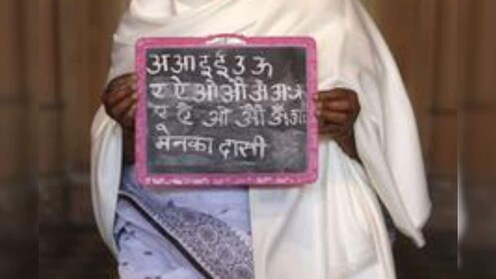 अ आ इ ई उ ऊ
ए ऐ ओ औ अं अः
ए ऐ ओ औ अं अः
मेनका दासी